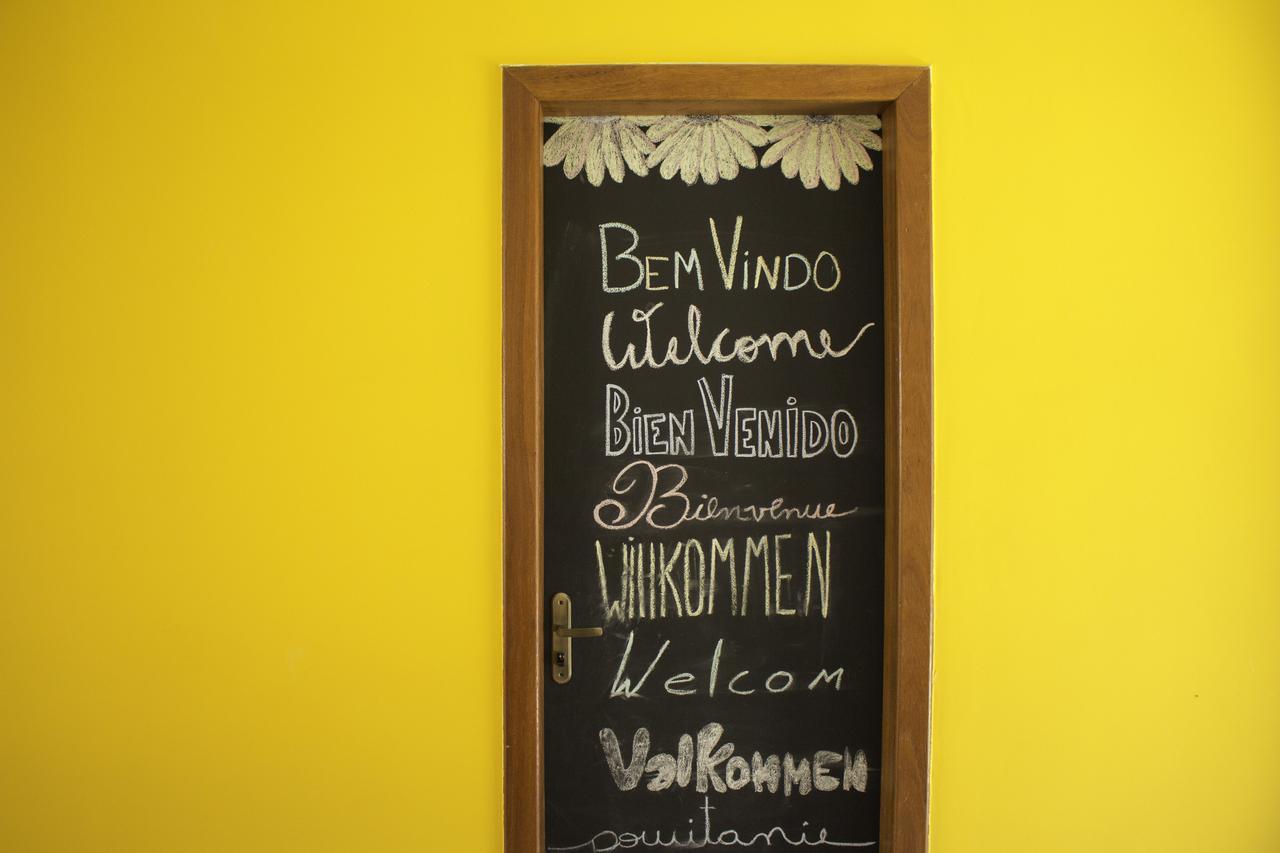 BEM ViNDO
Welcome
BiEN VENiDO
Bienvenue
WillKOMMEN
Welcom
VälKOMMEN
powitanie